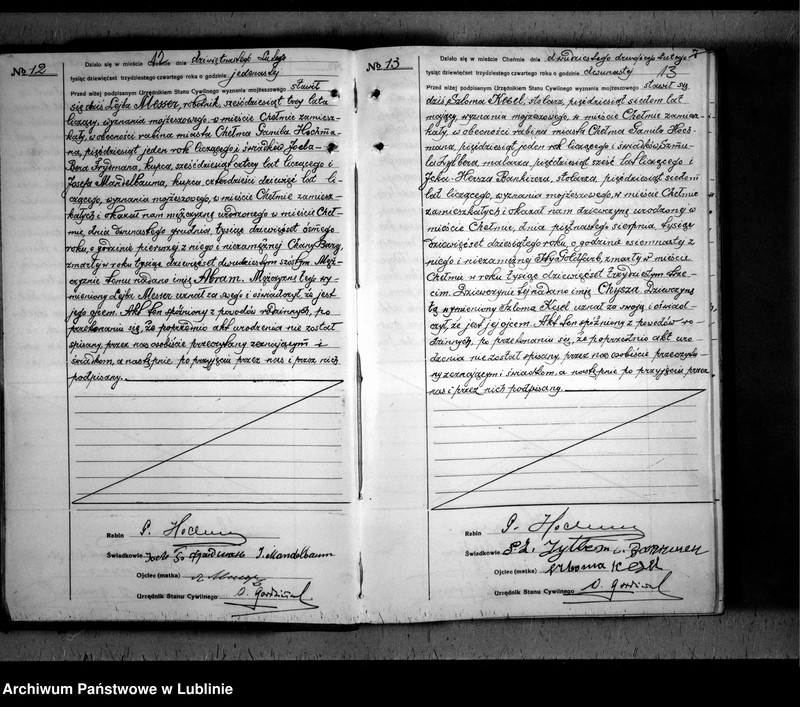 No 12
Działo się w mieście dnia dziewiętnastego Lutego
tysiąc dziewięćset trzydziestego czwartego roku o godzinie jedenastej
Przed niżej podpisanym Urzędnikiem Stanu Cywilnego wyznania mojżeszowego stawił
się dziś Lejba Messer, robotnik, sześćdziesiąt trzy lata
liczący, wyznania mojżeszowego, w mieście Chełmie zamiesz-
kały, w obecności rabina miasta Chełma Gamula Hochma-
na, pięćdziesiąt jeden rok liczącego i świadków Joela-
Bera Frydmana, kupca, sześćdziesiąt cztery lat liczącego i
Josefa Mandelbauma, kupca czterdzieści dziewięć lat li-
czącego, wyznania mojżeszowego, w mieście Chełmie zamiesz-
kałych i okazał nam mężczyznę urodzonego w mieście Cheł-
mie, dnia dwunastego grudnia, tysiąc dziewięćset ósmego
roku, o godzinie pierwszej z niego i niezamężnej Chany Barg,
zmarłej w roku tysiąc dziewięćset dwudziestym szóstym. Męż-
czyźnie temu nadano imię Abram. Mężczyznę tego wy-
mieniony Lejba Messer uznał za swego i oświadczył, że jest
jego ojcem. Akt ten spóźniony z powodów rodzinnych, po
przekonaniu się, że poprzednio akt urodzenia nie został
spisany, przez nas osobiście przeczytany zeznającym i
świadkom, a następnie po przyjęciu przez nas i przez nich
podpisany.
Rabin G. Hochman
Świadkowie J. Mandelbaum
Ojciec (matka)
Urzędnik Stanu Cywilnego
No 13
Działo się w mieście Chełmie dnia dwudziestego drugiego Lutego 7
tysiąc dziewięćset trzydziestego czwartego roku o godzinie dwunastej 13
Przed niżej podpisanym Urzędnikiem Stanu Cywilnego wyznania mojżeszowego stawił się
dziś Szloma Kesel, stolarz, pięćdziesiąt siedem lat
mający, wyznania mojżeszowego, w mieście Chełmie zamiesz-
kały, w obecności rabina miasta Chełma Gamula Hoch-
mana, pięćdziesiąt jeden rok liczącego i świadków Szmu-
la Zylbera, malarza, pięćdziesiąt sześć lat liczącego i
Jcka-Hersza Bankizera, stolarza, pięćdziesiąt siedem
lat liczącego, wyznania mojżeszowego, w mieście Chełmie
zamieszkałych i okazał nam dziewczynę urodzoną w
mieście Chełmie, dnia piętnastego sierpnia, tysiąc
dziewięćset dziesiątego roku, o godzinie osiemnastej z
niego i niezamężnej Goldfarb, zmarłej w mieście
Chełmie w roku tysiąc dziewięćset trzydziestym trze-
cim. Dziewczynie tej nadano imię Chysza. Dziewczynę
tę wymieniony Szloma Kesel uznał za swoją i oświad-
czył, że jest jej ojcem. Akt ten spóźniony z powodów ro-
dzinnych, po przekonaniu się, że poprzednio akt uro-
dzenia nie został spisany, przez nas osobiście przeczyta-
ny zeznającym i świadkom, a następnie po przyjęciu przez
nas i przez nich podpisany.
Rabin G. Hochman
Świadkowie
Ojciec (matka)
Urzędnik Stanu Cywilnego
Archiwum Państwowe w Lublinie